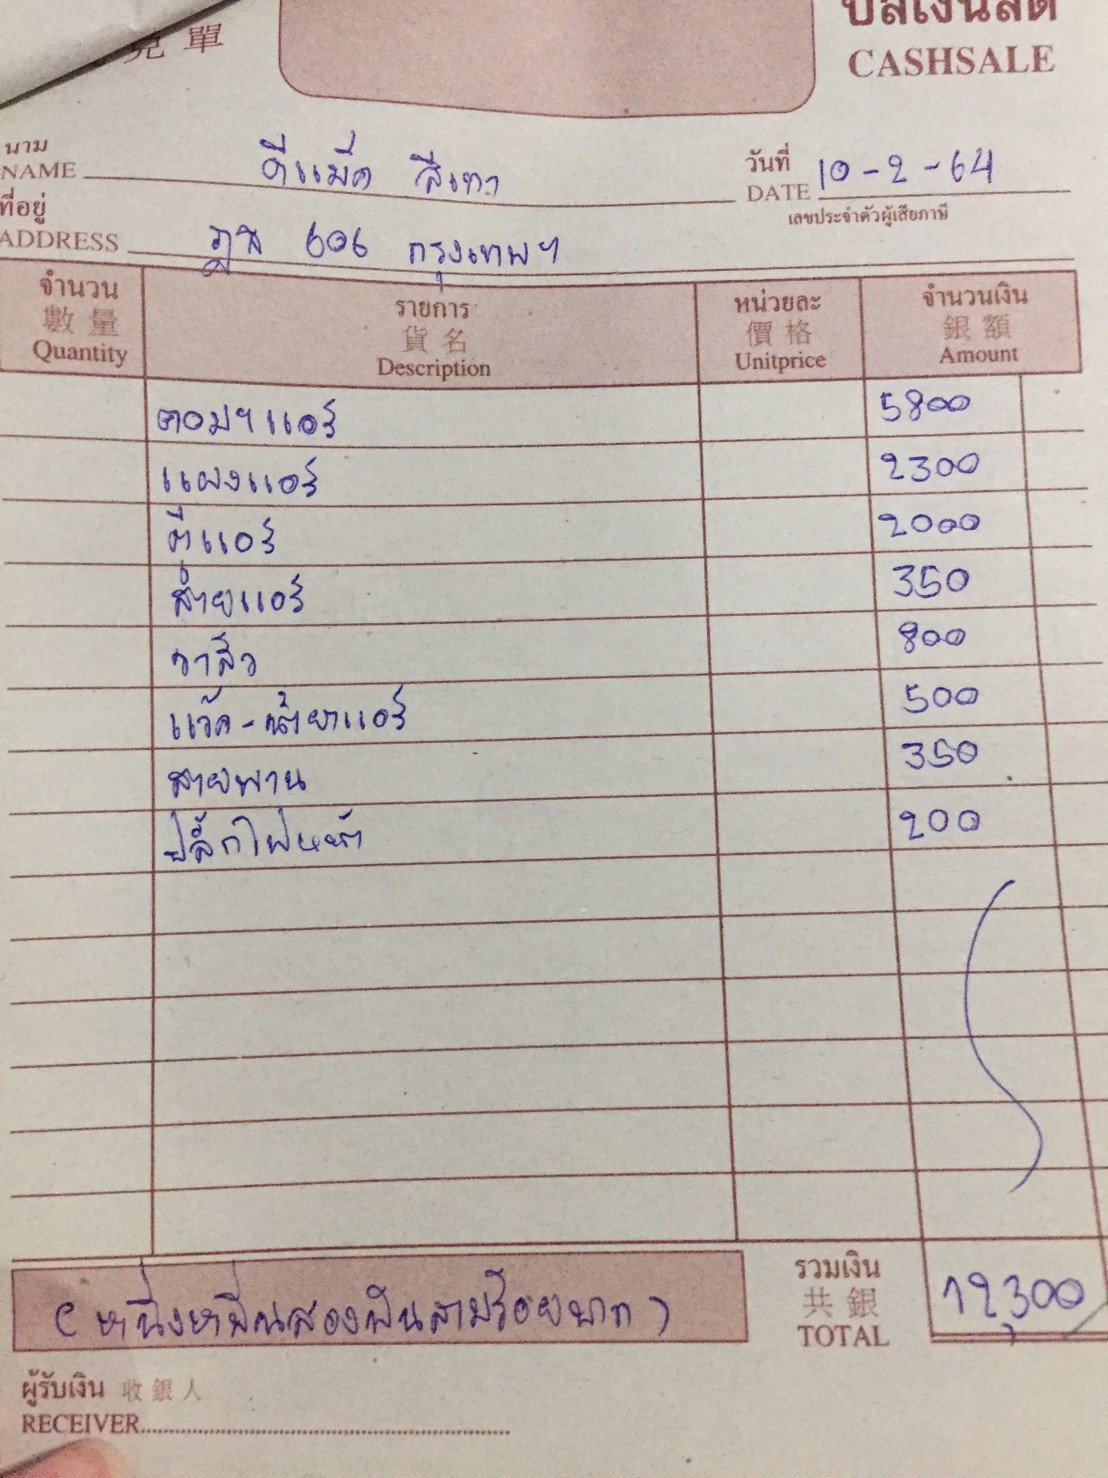 兌單
บิลเงินสด
CASHSALE
นาม
NAME ดีแม็ค สีเทา
วันที่
DATE 10-2-64
เลขประจำตัวผู้เสียภาษี
ที่อยู่
ADDRESS 606 กรุงเทพฯ
จำนวน รายการ หน่วยละ จำนวนเงิน
數量 貨名 價格 銀額
Quantity Description Unitprice Amount
คอมฯแอร์ 5800
แผงแอร์ 2300
ตู้แอร์ 2000
สายแอร์ 350
วาล์ว 800
แว๊ค-น้ำยาแอร์ 500
สายพาน 350
ปลั๊กไฟหน้า 200
(หนึ่งหมื่นสองพันสามร้อยบาท)
รวมเงิน
共銀
TOTAL 12,300
ผู้รับเงิน 收銀人
RECEIVER